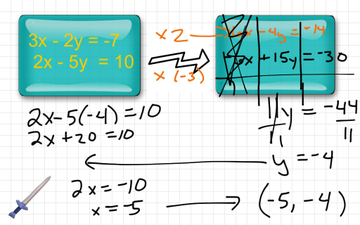 3x - 2y = -7
2x - 5y = 10
x 2
x (-3)
-4y = -14
x + 15y = -30
11y = -44
11
y = -4
2x-5(-4)=10
2x+20=10
2x=-10
x=-5
(-5, -4)